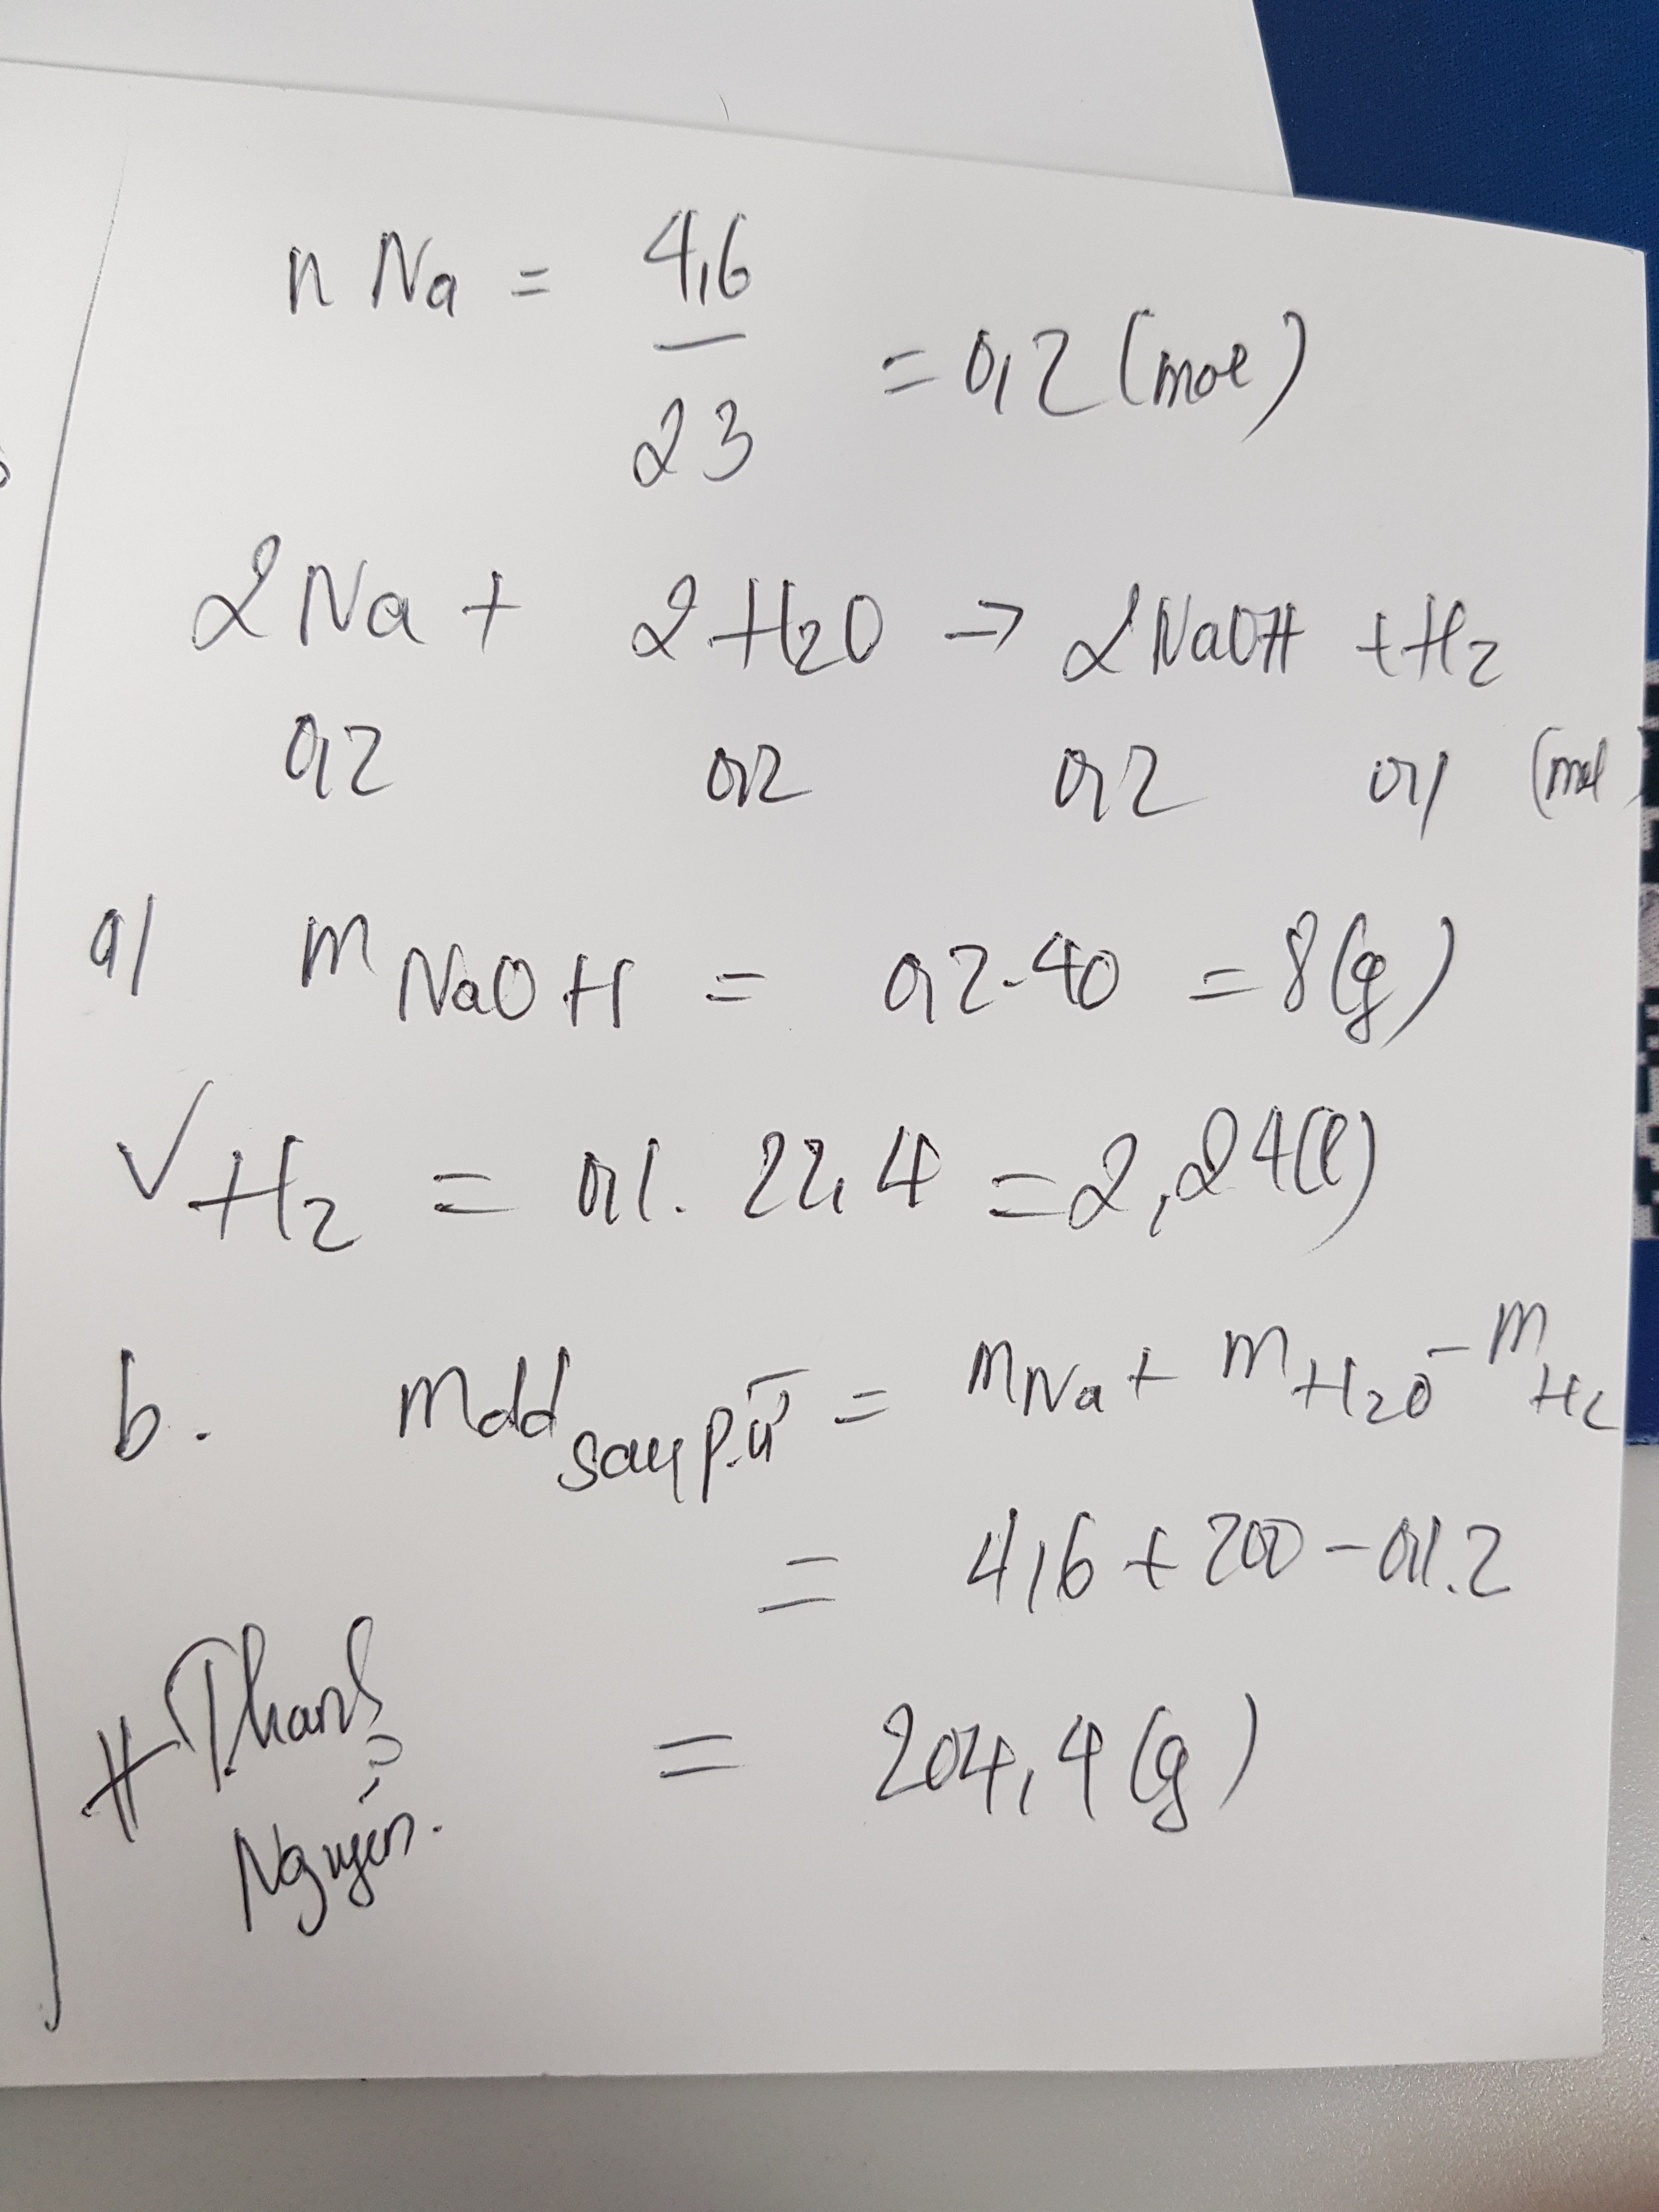 n Na = 4,6 / 23 = 0,2 (mol)
2Na + 2H₂O → 2NaOH + H₂
0,2 0,2 0,2 0,1 (mol)
a/ m NaOH = 0,2.40 = 8(g)
V H₂ = 0,1. 22,4 = 2,24(l)
b. mdd sau p.ư = mNa + mH₂O - mH₂
= 4,6 + 200 - 0,1.2
= 204,4 (g)
# Thanh
Nguyễn.